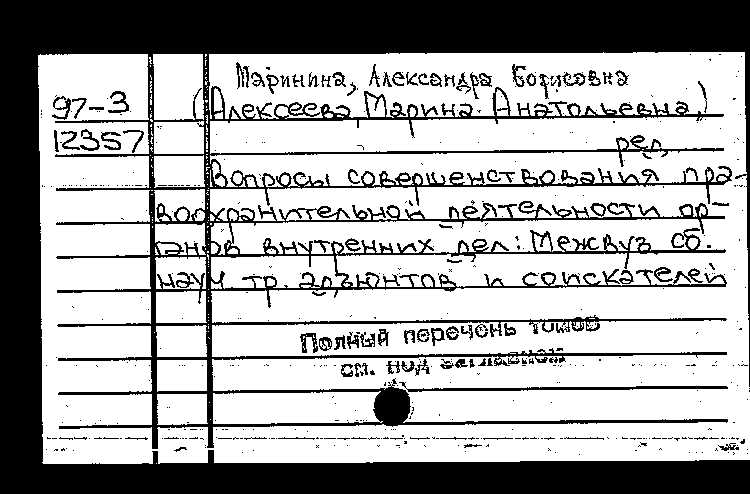 Маринина, Александра Борисовна
97-3 (Алексеева Марина Анатольевна,)
12357 ред.
Вопросы совершенствования пра-
воохранительной деятельности ор-
ганов внутренних дел: Межвуз. сб.
науч тр. адъюнтов и соискателей
Полный перечень томов
см. под заглавием